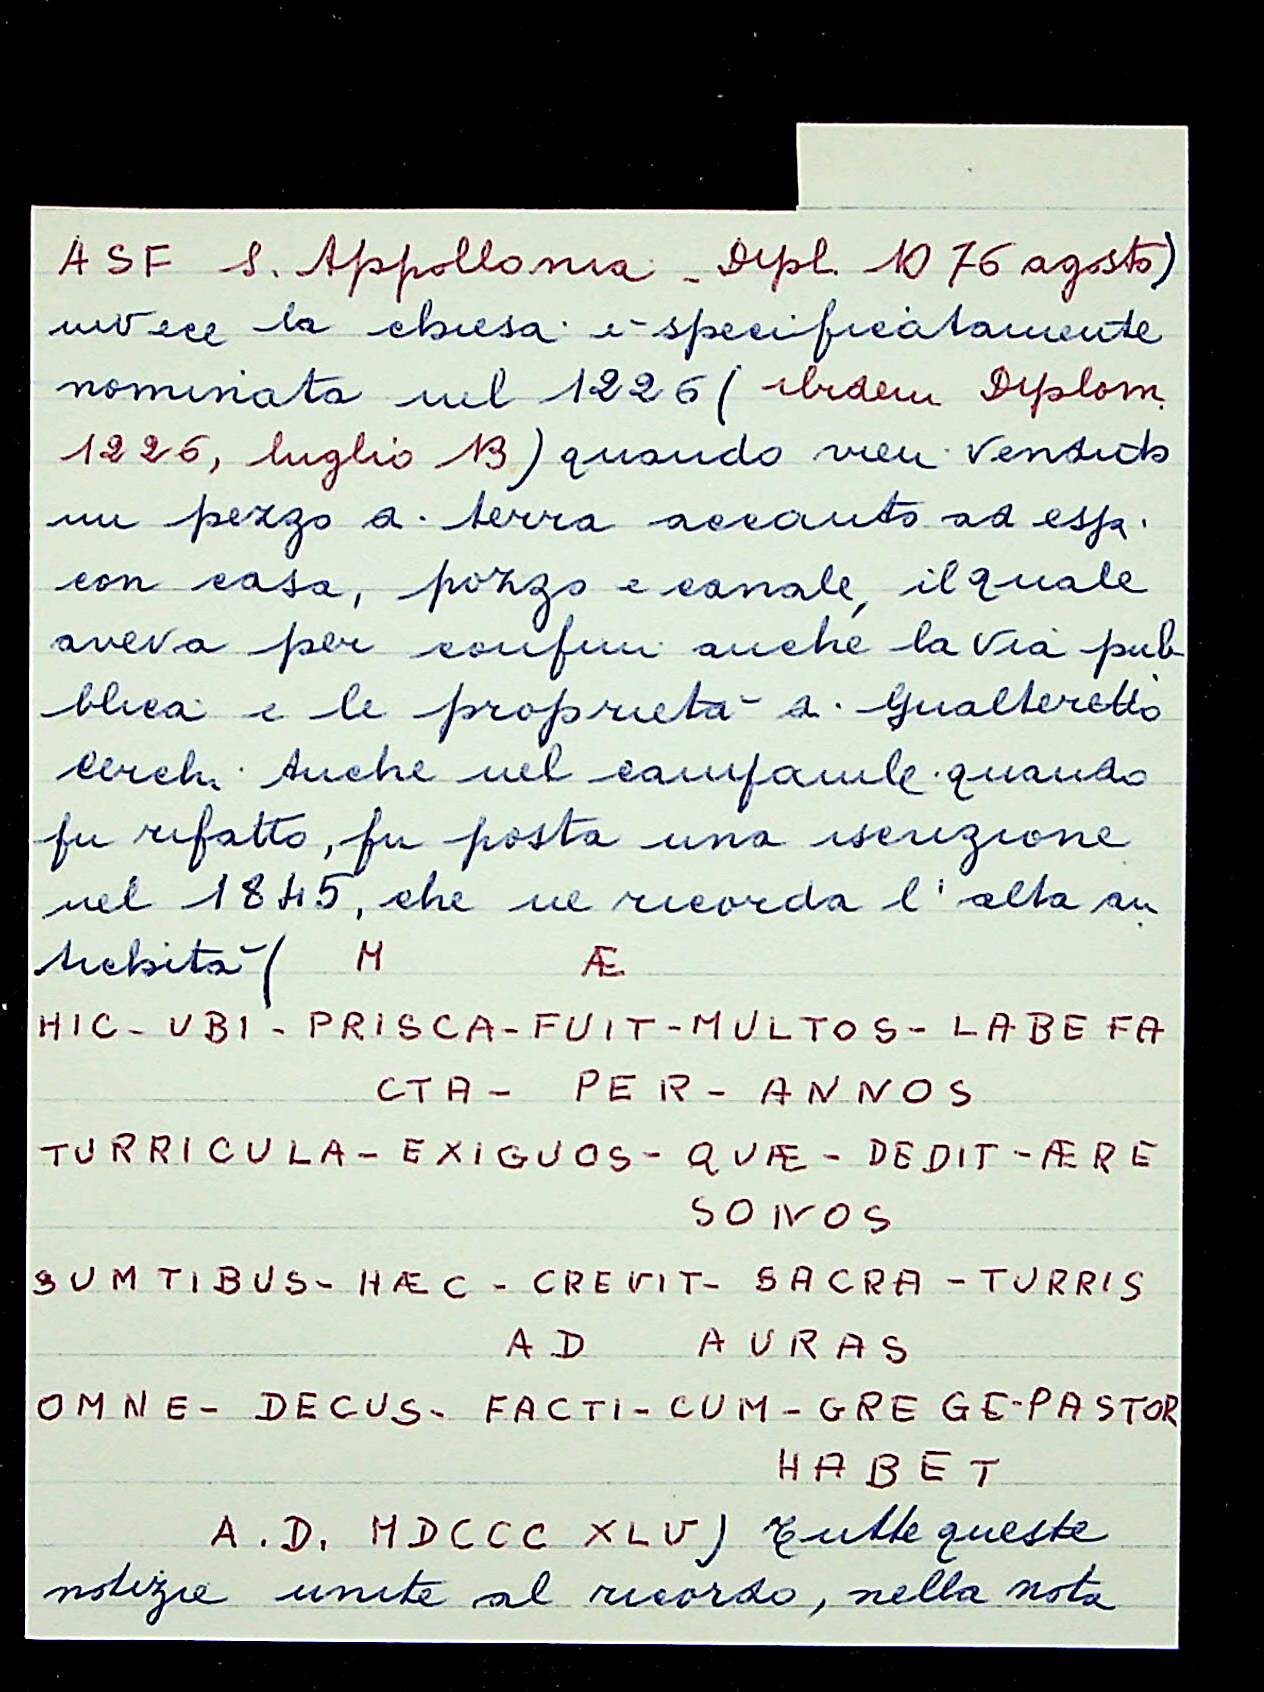 ASF S. Appollonia - Dipl. 1076 agosto)
invece la chiesa è specificatamente
nominata nel 1226 ( ibidem Diplom.
1226, luglio 13) quando vien venduto
un pezzo di terra accanto ad essa
con casa, pozzo e canale, il quale
aveva per confini anche la via pub
blica e le proprietà di Gualteretto
Cerchi. Anche nel campanile quando
fu rifatto, fu posta una iscrizione
nel 1845, che ne ricorda l'alta an
tichità ( M Æ
HIC - UBI - PRISCA - FUIT - MULTOS - LABEFA
CTA - PER - ANNOS
TURRICULA - EXIGUOS - QUÆ - DEDIT - ÆRE
SONOS
SUMTIBUS - HÆC - CREVIT - SACRA - TURRIS
AD AURAS
OMNE - DECUS - FACTI - CUM - GREGE - PASTOR
HABET
A.D. MDCCC XLV) Tutte queste
notizie unite al ricordo, nella nota